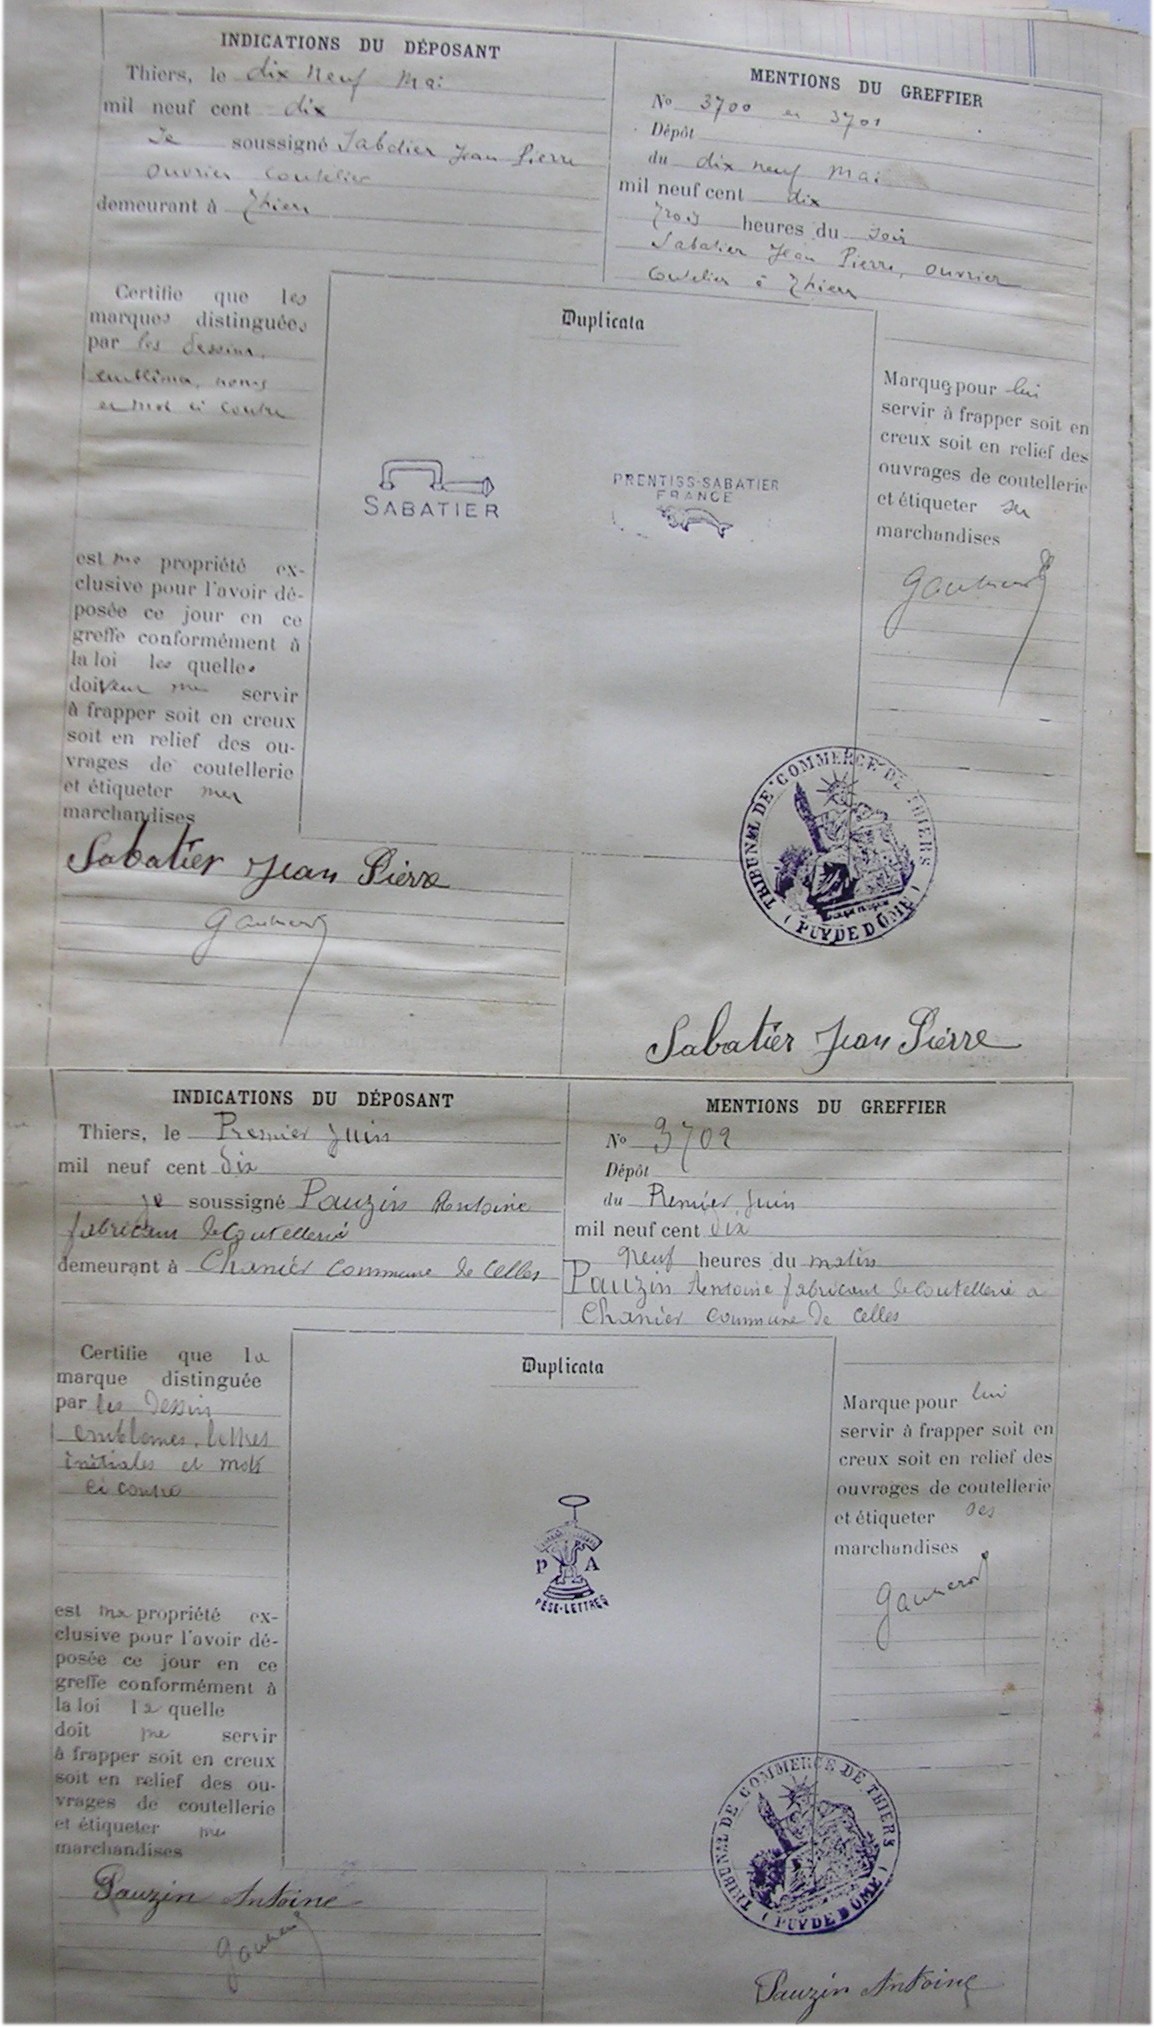 INDICATIONS DU DÉPOSANT
Thiers, le dix neuf Mai
mil neuf cent dix
Je soussigné Sabatier Jean Pierre
ouvrier coutelier
demeurant à Thiers
MENTIONS DU GREFFIER
No 3700 et 3701
Dépôt
du dix neuf Mai
mil neuf cent dix
Trois heures du soir
Sabatier Jean Pierre, ouvrier
coutelier à Thiers
Certifie que les
marques distinguées
par les dessins,
emblèmes, noms
et mot ci contre
est ma propriété ex-
clusive pour l'avoir dé-
posée ce jour en ce
greffe conformément à
la loi les quelles
doivent me servir
à frapper soit en creux
soit en relief des ou-
vrages de coutellerie
et étiqueter mes
marchandises
Duplicata
SABATIER
PRENTISS-SABATIER
FRANCE
Marques pour lui
servir à frapper soit en
creux soit en relief des
ouvrages de coutellerie
et étiqueter ses
marchandises
TRIBUNAL DE COMMERCE DE THIERS
(PUY DE DÔME)
Sabatier Jean Pierre
Sabatier Jean Pierre
INDICATIONS DU DÉPOSANT
Thiers, le Premier Juin
mil neuf cent dix
je soussigné Pauzin Antoine
fabricant de Coutellerie
demeurant à Chanier commune de Celles
MENTIONS DU GREFFIER
No 3702
Dépôt
du Premier Juin
mil neuf cent dix
Neuf heures du matin
Pauzin Antoine fabricant de coutellerie a
Chanier commune de Celles
Certifie que la
marque distinguée
par les dessin
emblèmes, lettres
initiales et mots
ci contre
est ma propriété ex-
clusive pour l'avoir dé-
posée ce jour en ce
greffe conformément à
la loi la quelle
doit me servir
à frapper soit en creux
soit en relief des ou-
vrages de coutellerie
et étiqueter mes
marchandises
Duplicata
P A
PÈSE-LETTRES
Marque pour lui
servir à frapper soit en
creux soit en relief des
ouvrages de coutellerie
et étiqueter ses
marchandises
TRIBUNAL DE COMMERCE DE THIERS
(PUY DE DÔME)
Pauzin Antoine
Pauzin Antoine